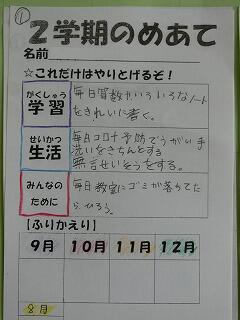 ①
2学期のめあて
名前
☆これだけはやりとげるぞ!
がくしゅう
学習
毎日算数やいろいろなノート
をきれいに書く。
せいかつ
生活
毎日コロナ予防でうがい手
洗いをきちんとする
無言せいそうをする。
みんなの
ために
毎日教室にゴミが落ちてた
らひろう。
【ふりかえり】
9月 10月 11月 12月
8月